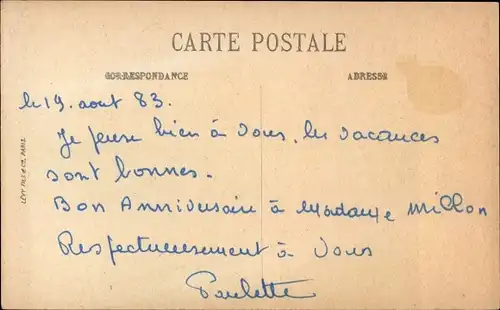 CARTE POSTALE
CORRESPONDANCE
ADRESSE
le 19. aout 83.
Je pense bien à vous, les vacances
sont bonnes.
Bon Anniversaire à Madame Millon
Respectueusement à Vous
Paulette
LÉVY FILS & Cie, PARIS